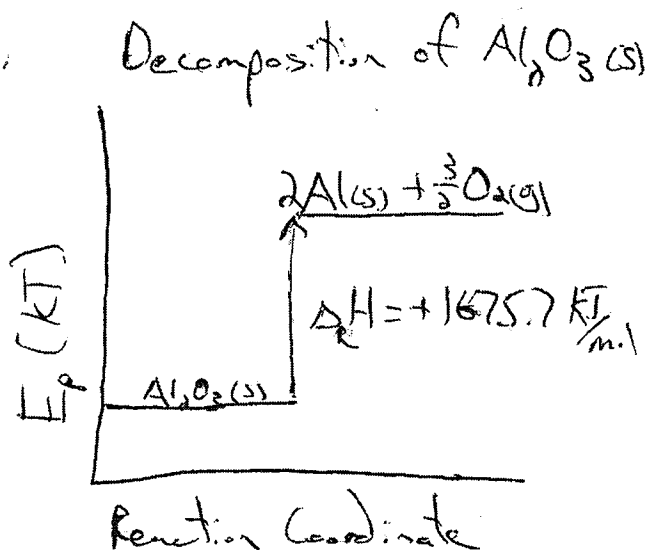 Decomposition of Al₂O₃ (s)
2Al(s) + 3/2 O₂(g)
Eₚ (kJ)
ΔᵣH = +1675.7 kJ/mol
Al₂O₃(s)
Reaction Coordinate